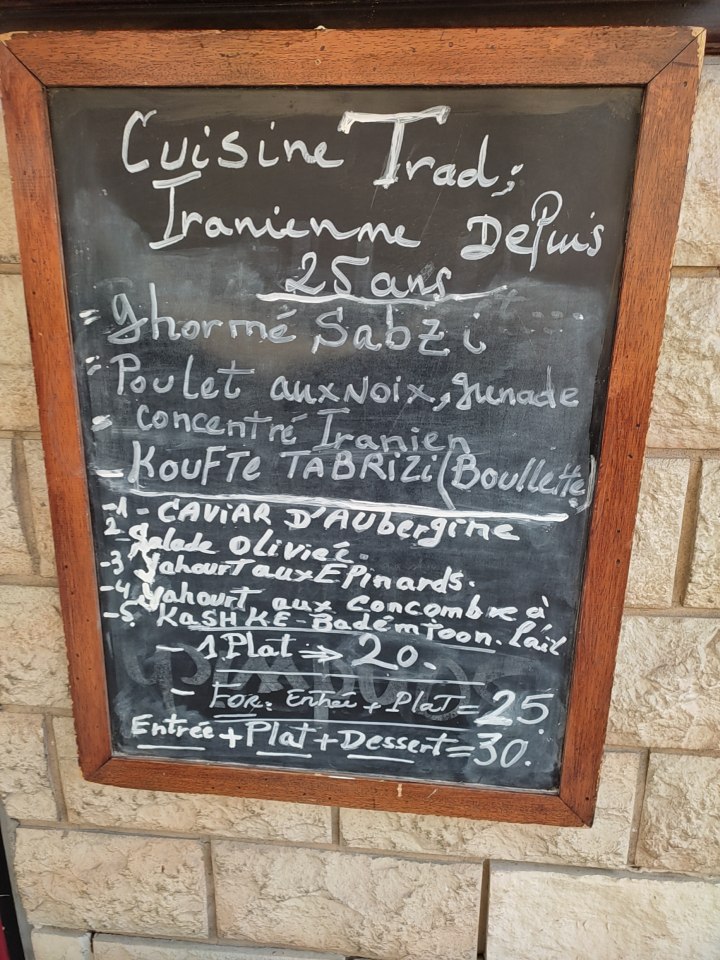 Cuisine Trad;
Iranienne Depuis
25 ans
= Ghormé Sabzi
= Poulet aux Noix, grenade
= concentré Iranien
- KouFTe TABRIZi (Boullette)
-1- CAViAR D'AUbergine
2- Salade oliviée.
-3 Yahourt aux EPinards.
-4 Yahourt aux Concombre à l'ail
-5. KaSHKE-Badémjoon.
- 1 Plat ⇒ 20.
- FOR: Entrée + Plat = 25
Entrée + Plat + Dessert = 30.